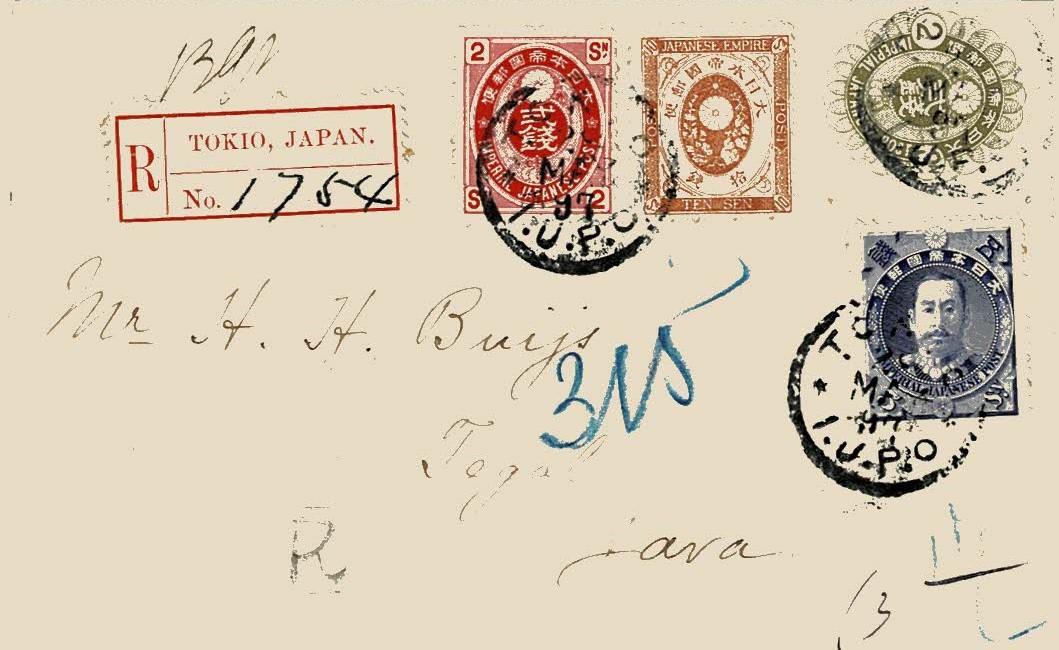 R
TOKIO, JAPAN.
No. 1754
2 SN
大日本帝國郵便
貳錢
IMPERIAL JAPANESE
S 2
JAPANESE EMPIRE
大日本帝國郵便
POST
POST
拾錢
TEN SEN
10
2
大日本帝國郵便
貳錢
IMPERIAL JAPAN
97
I.U.P.O
大日本帝國郵便
IMPERIAL JAPANESE POST
97
I.U.P.O
Mr H. H. Buijs
315
Tegal
R
Java